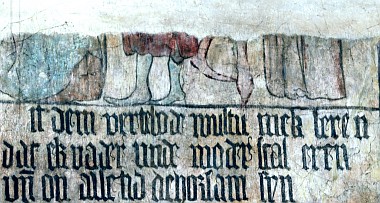 dem wultu mek leren
dat ek vader vnde moder scal eren
vn on alletid gehorsam syn